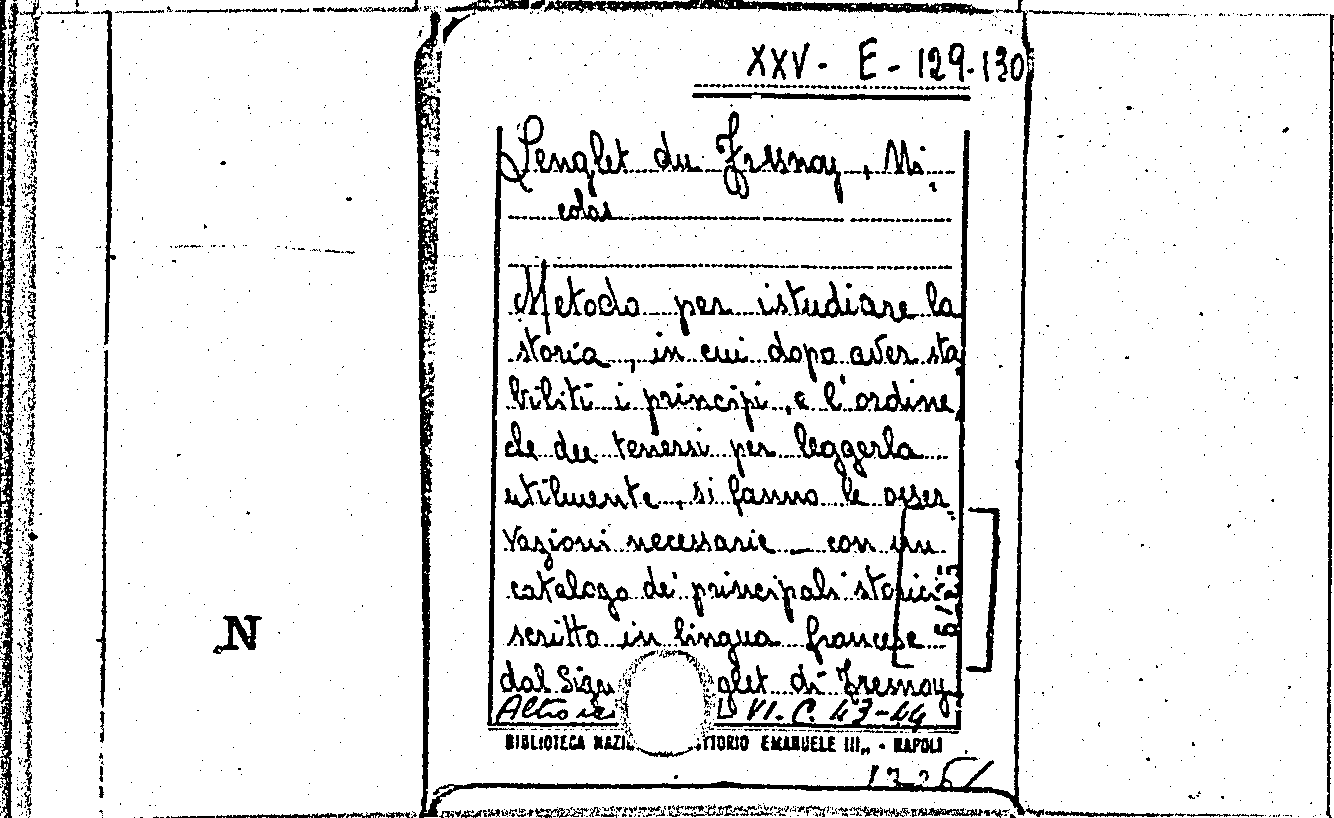 XXV - E - 129-130
Lenglet du Fresnoy, Ni-
colas
Metodo per istudiare la
storia, in cui dopo aver sta
biliti i principi, e l'ordine,
che dee tenersi per leggerla
utilmente, si fanno le osser
vazioni necessarie _ con un
catalogo de' principali storici
scritto in lingua francese
dal Sign glet di Fresnoy
Altro VI. C. 43-44
BIBLIOTECA NAZI TTORIO EMANUELE III,, - NAPOLI
N